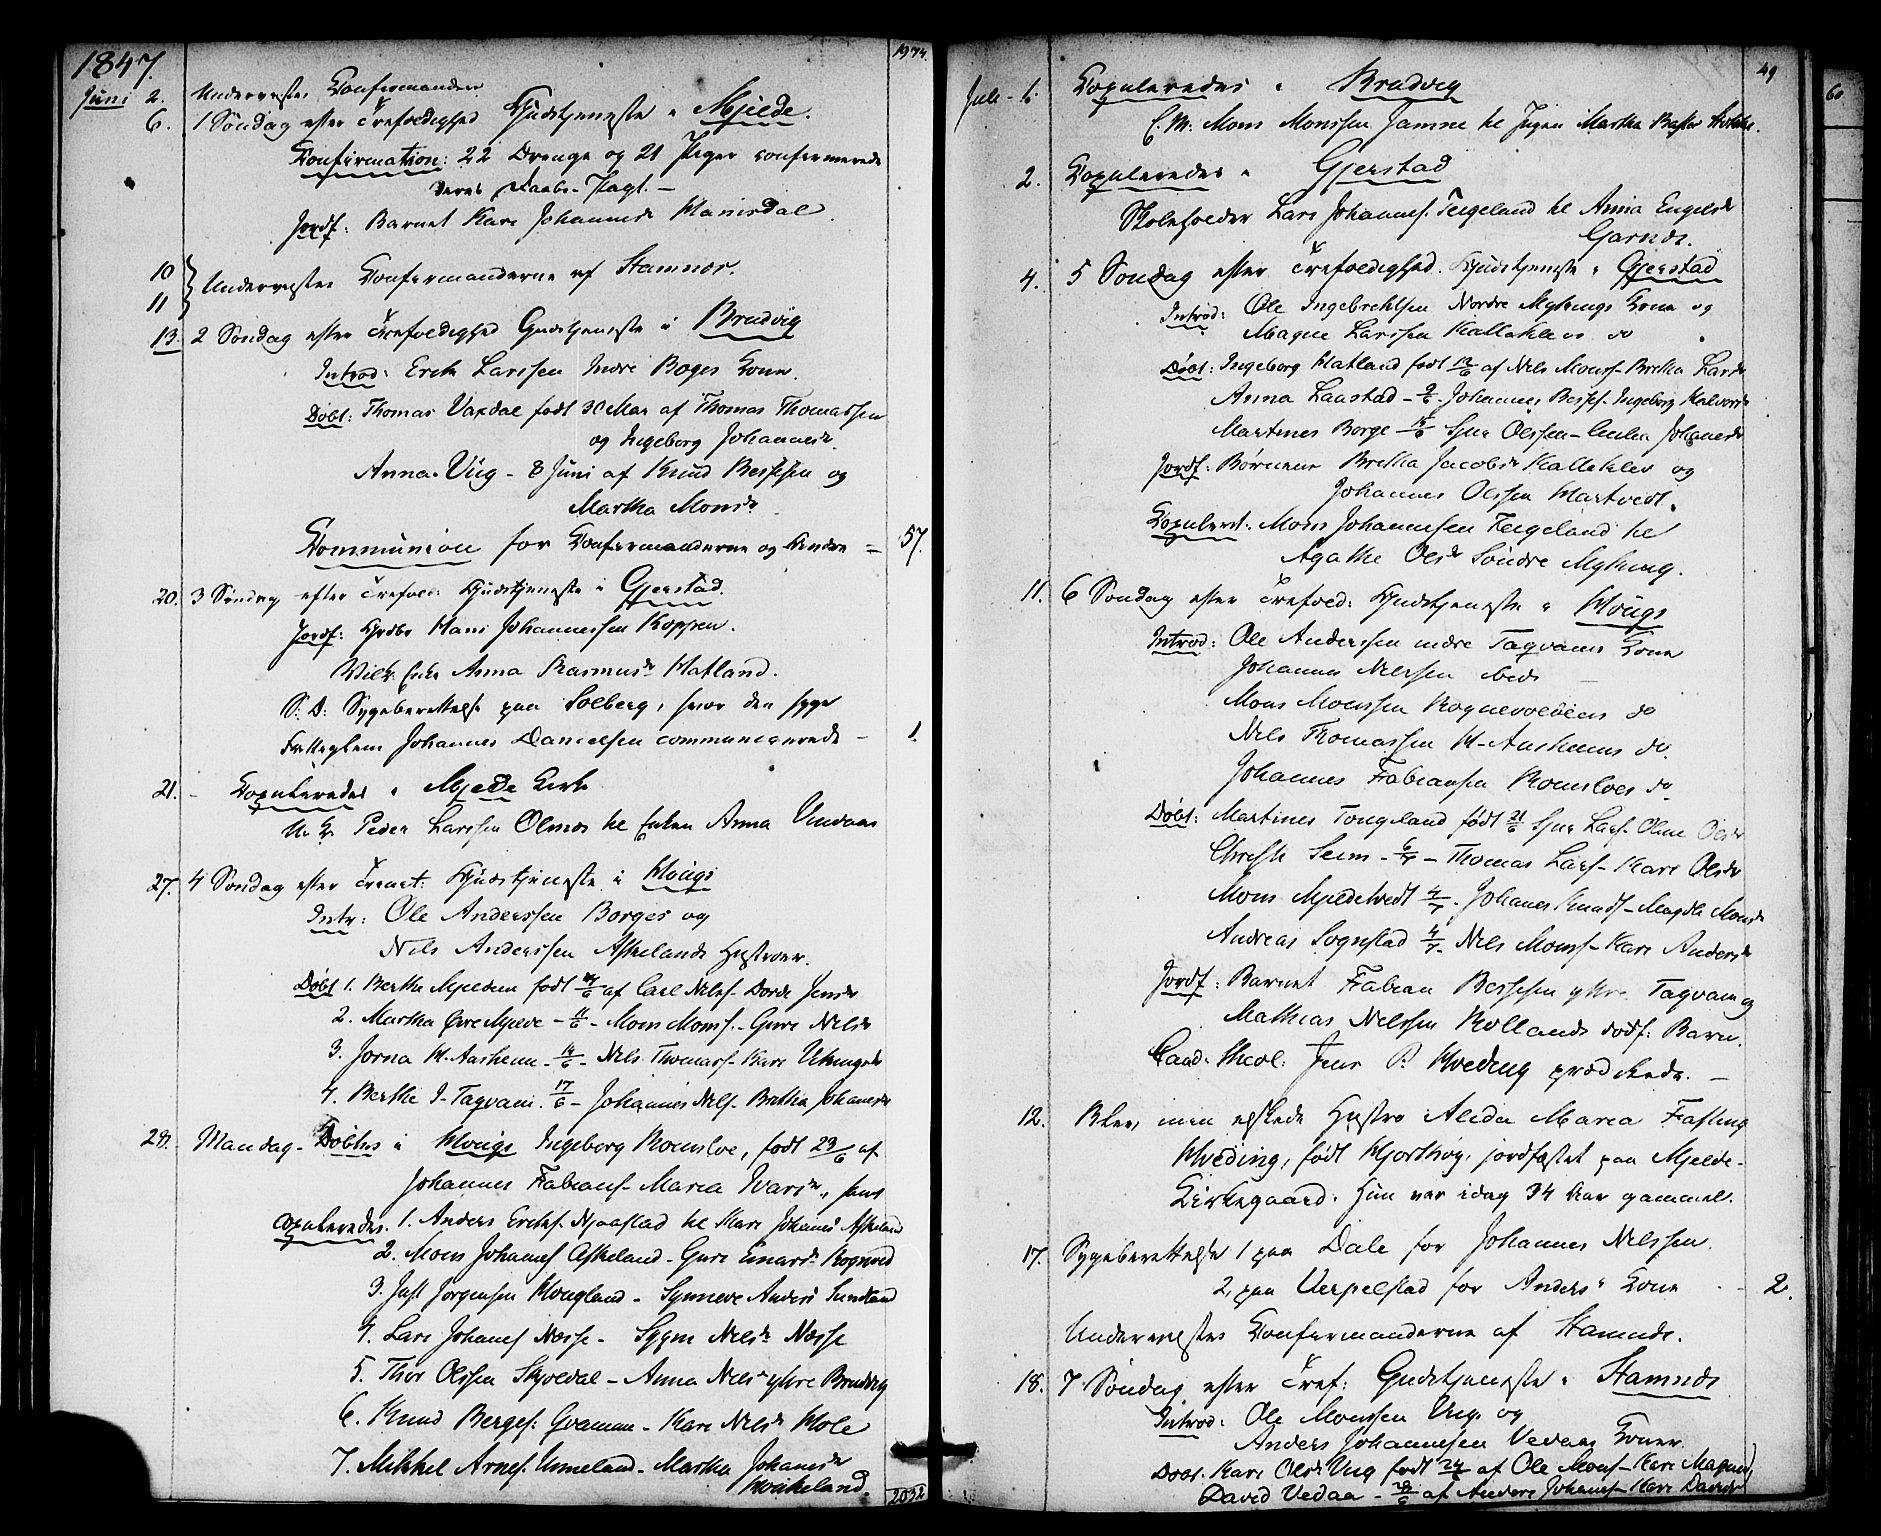 1847.
1974.
Juni 2. Underviistes Confirmanden
6. 1 Söndag efter Trefoldighed Gudstjeneste i Mjelde.
Confirmation: 22 Drenge og 21 Piger confirmerede
deres Daabs-Pagt. —
Jordf: Barnet Kari Johannesdr Hanisdal.
10
11 } Undervistes Confirmanderne af Stamnes.
13. 2 Söndag efter Trefoldighed Gudstjeneste i Brudvig
Introd: Erik Larssen Indre Boges Kone.
Döbt: Thomas Vaxdal født 30 Mai af Thomas Thomassen
og Ingeborg Johannesdr
Anna Vüg - 8 Juni af Knud Bessesen og
Martha Monsdr
Communion for Confirmanderne og Andre = 57.
20. 3 Söndag efter Trefold: Gudstjeneste i Gjerstad.
Jordf: Hans Johannessen Koppen.
Anna Rasmusdr Hatland.
S. D: Sygeberettelse paa Solberg, hvor den syge
Fattiglem Johannes Danielsen communicerede - 1
21. - Copuleredes i Mjelde Kirke
Peder Larssen Olsnes til Enken Anna Vedaa
27. 4 Söndag efter Trenit: Gudstjeneste i Houge
Intr: Ole Anderssen Borges og
Nils Anderssen Askelands Hustroer.
Döbt 1. Berthe Mjelden født af Carl Nilsf - Dorde Jensdr
2. Martha Øvre Mjelde - 11/6 - Mons Monsf. - Guri Nilsdr
3. Jorna H. Aasheim - 14/6 - Nils Thomasf - Kari
4. Berthe I - Taqvam. 17/6 - Johannes Nilsf - Brithe Johannesdr
28. Mandag - Döbtes i Houge Ingeborg Romsloe, født 23/6 af
Johannes Fabiansf - Maria Ivarsdr, samt
copuleredes. 1. Anders Eriksf. Njaastad til Kari Johansdr Askeland
2. Mons Johannesf Askeland - Guri Einarsdr
3. Jorgensen Hougland - Synneve Andersdr
4. Lars Johannesf Næsse - Sygni Nilsdr Næsse
5. Thor Olssen Skjoldal - Anna Nilsdr ytre Brudvig
6. Knud Bergesf. Gvamme - Kari Nilsdr Hole
7. Mikkel Arnesf. Unneland - Martha Johannesdr
Hvikeland.
2032
49
60
Juli - 1. Copuleredes i Brudvig
E. M: Mons Monssen Jamne til Pigen Martha
2. Copuleredes i Gjerstad
Skoleholder Lars Johannesf. Teigeland til Anna Engelsdr
Garnæs.
4. 5 Söndag efter Trefoldighed. Gudstjeneste i Gjerstad
Introd: Ole Ingebrektsen Nordre Myking Kone og
Magne Larssen Kalleklev do
Döbt: Ingeborg Hatland født af Nils Monsf - Britha Larsdr
Anna Laastad - Johannes - Ingeborg Halvorsdr
Martines Borge - Sjur Olssen - Johannesdr
Jordf: Børnene Britha Jacobsdr Kalleklev og
Johannes Olssen Hartvedt.
Copuleret: Mons Johannessen Teigeland til
Agathe Olsdr Søndre Myking.
11. 6 Söndag efter Trefold: Gudstjeneste i Houge
Introd: Ole Anderssen indre Taqvams Kone
Johannes Nilssen ibid
Mons Monssen do
Nils Thomassen H-Aasheims do
Johannes Fabiansen Romsloes do
Döbt: Martines Tongeland født 21/6 Sjur Larsf - Oline Olsdr
Seim - - Thomas Larsf - Kari Olsdr
Mons Mjeldetvedt 4/7 - Johannes Knudsf - Magdle Monsdr
Andreas Sognstad 4/7 - Nils Monsf - Kari Andersdr
Jordf: Barnet Fabian Bessesen ytre Taqvam og
Mathias Nilssen Rollands dødf: Barn.
Cand: theol: Jens P. Hveding prædikede. —
12. Blev min elskede Hustru Alida Maria Fasting
Hveding, født Hjorthøy, jordfæstet paa Mjelde-
Kirkegaard. Hun var idag 34 Aar gammel.
17. Sygeberettelse 1 paa Dale for Johannes Nilssen.
2, paa Verpelstad for Anders's Kone - - 2.
Undervistes Confirmanderne af Stamnes.
18. 7 Söndag efter Tref: Gudstjeneste i Stamnes
Introd: Ole Monssen Vüg og
Anders Johannessen Vedaas Koner
Döbt: Kari Olsdr Vüg født af Ole Monsf - Kari Magnesdr
David Vedaa - af Anders Johannesf - Kari Davidsdr